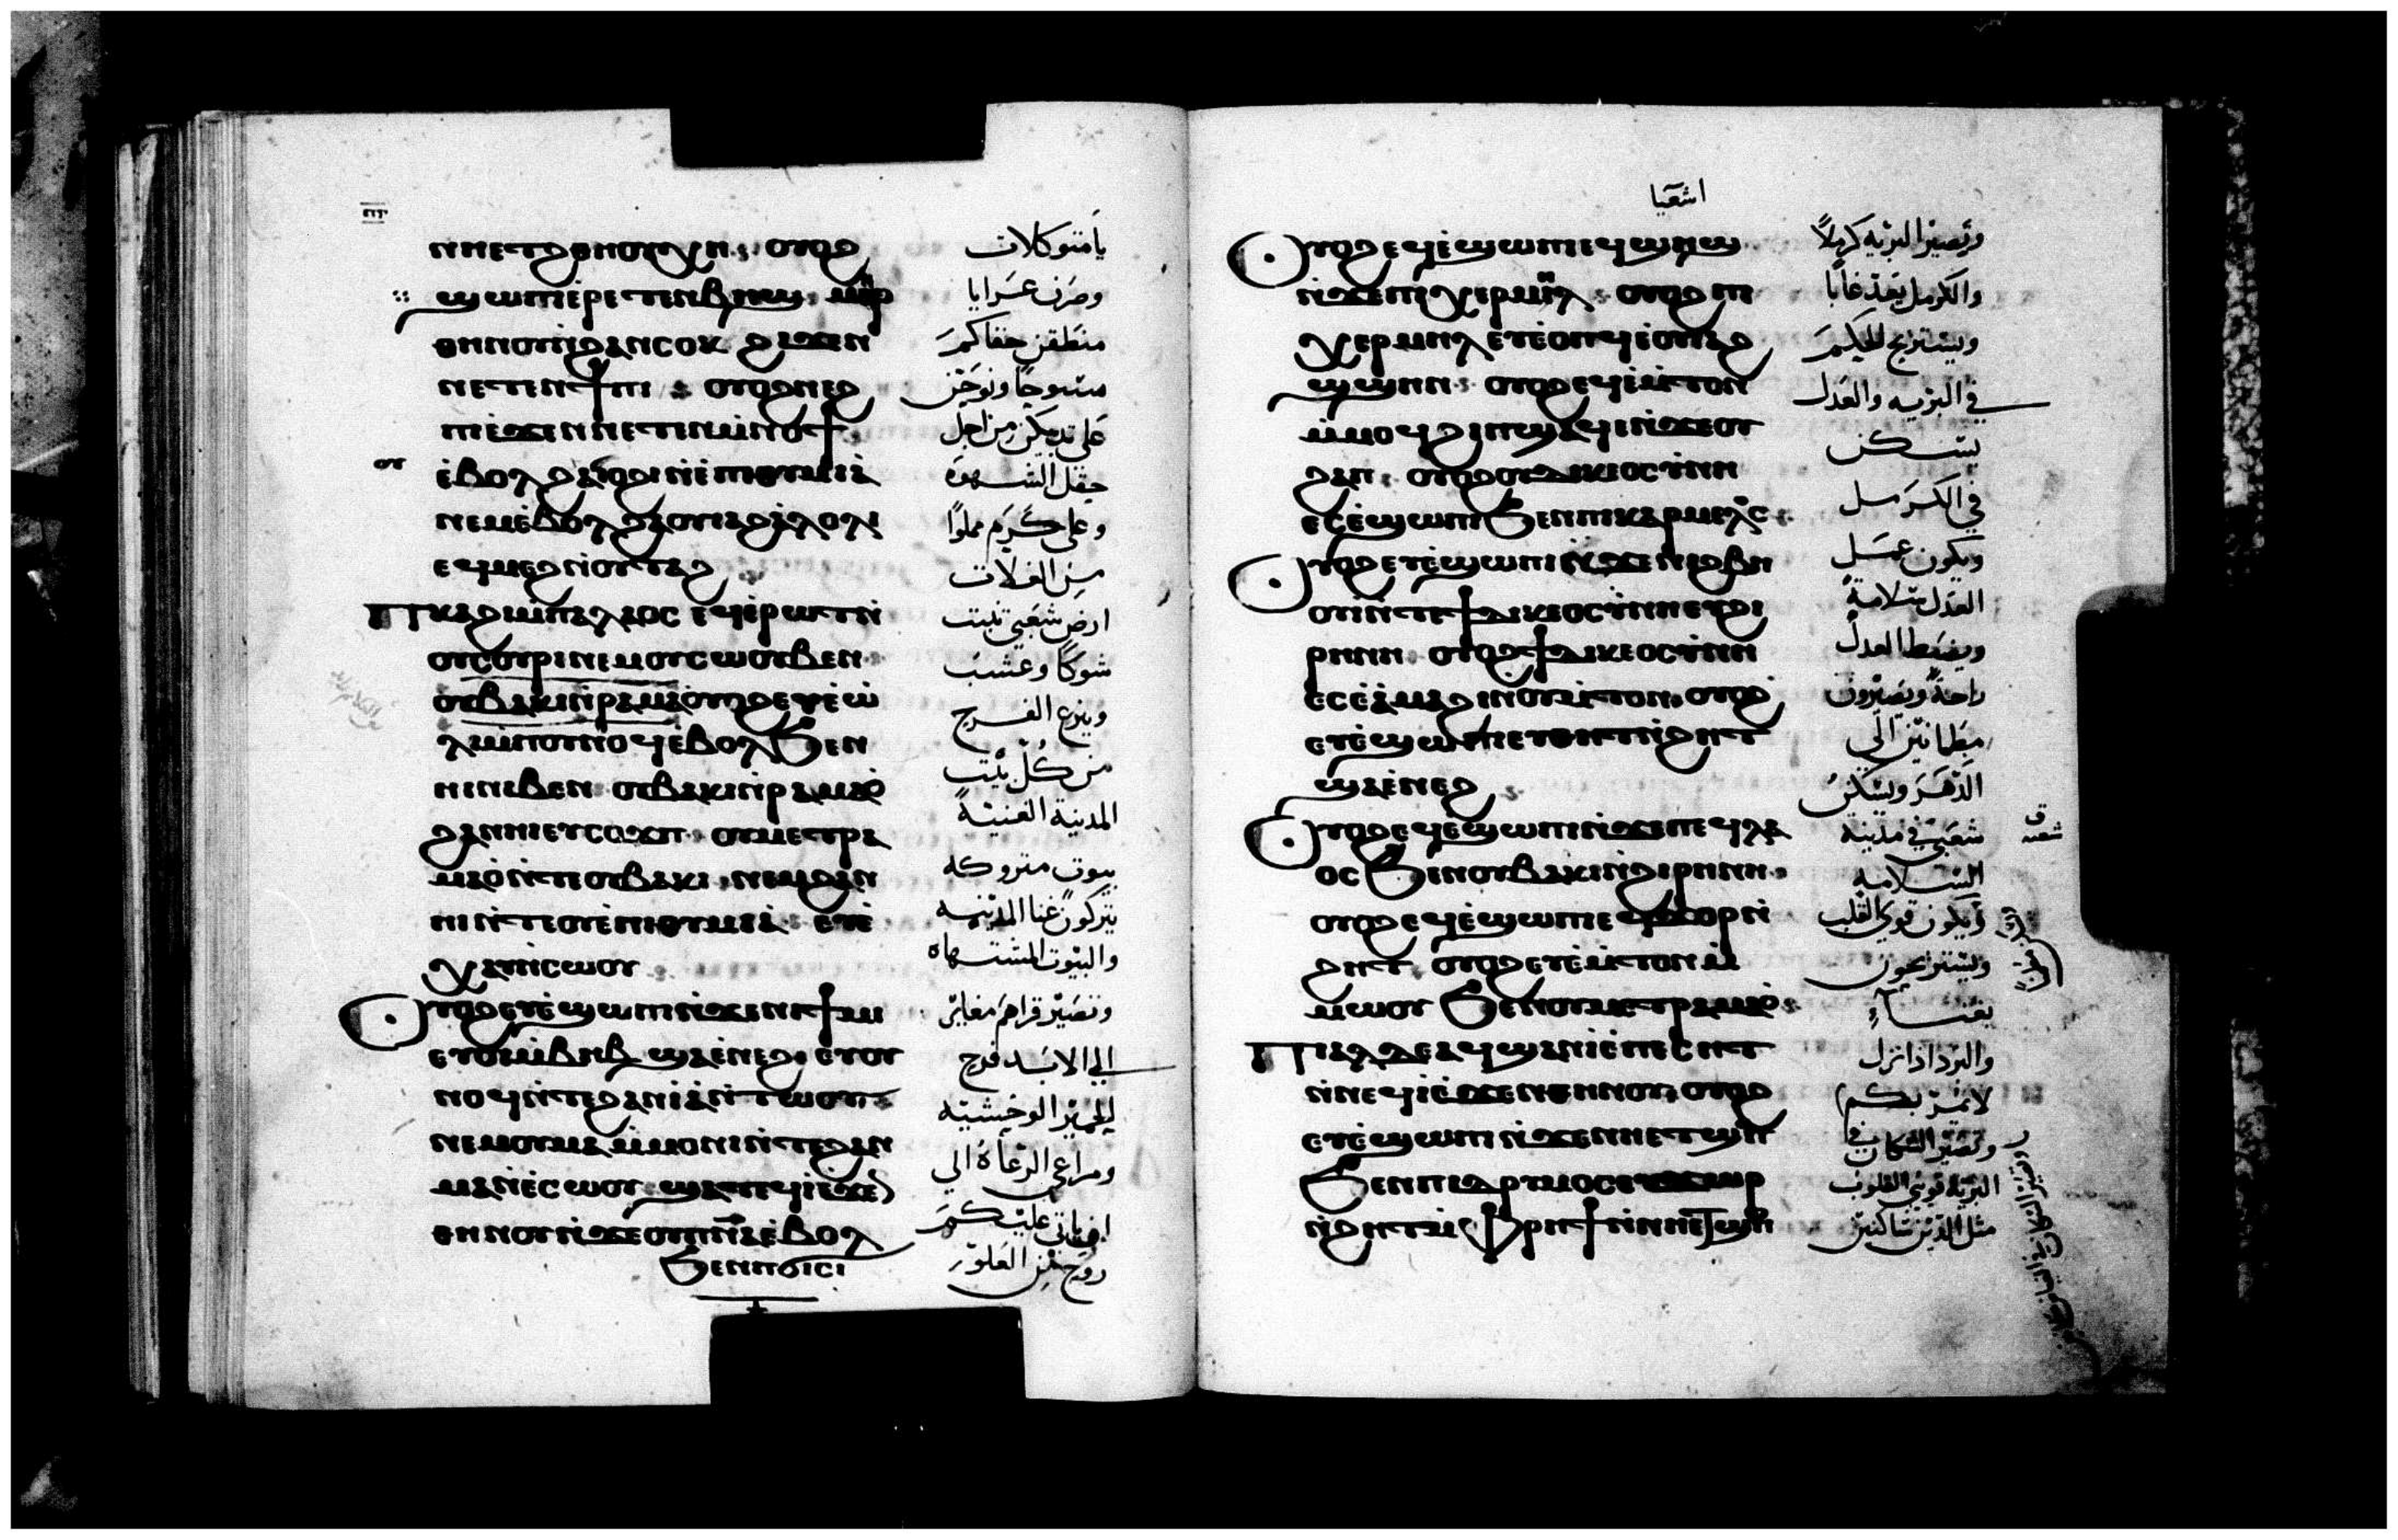 ⲟⲩⲟϩ
ϣⲱⲡⲓ ⲉ̀ⲣⲉⲧⲉⲛⲃⲏϣ ⲙⲏⲣ
ⲑⲏⲛⲟⲩ ⲛ̀ϩⲁⲛⲥⲟⲕ ϩⲓϫⲉⲛ
ⲛⲉⲧⲉⲛϯⲡⲓ ⲟⲩⲟϩ ⲛⲉϩ
ⲡⲓ ⲉ̀ϫⲉⲛ ⲛⲉⲧⲉⲛⲙ̀ⲛⲟϯ
ⲉ̀ⲃⲟⲗ ϩⲁ ⲓⲟϩⲓ ⲛ̀ⲉ̀ⲡⲓⲑⲩⲙⲓⲁ̀
ⲛⲉⲙ ⲉ̀ⲃⲟⲗ ϩⲁ ⲟⲩⲓⲁϩⲁ̀ⲗⲟⲗⲓ
ⲉϥⲙⲉϩ ⲛ̀ⲟⲩⲧⲁϩ
Ⲡⲕⲁϩⲓ ⲙ̀ⲡⲁⲗⲁⲟⲥ ⲉϥⲉ̀ⲣⲱⲧ ⲛ̀
ⲟⲩⲥⲟⲩⲣⲓ ⲛⲉⲙ ⲟⲩⲥⲱⲟⲩⲃⲉⲛ
ⲟⲩⲃⲁⲕⲓ ⲛ̀ⲣⲁⲙⲁⲟ̀ ⲉⲩⲉ̀ⲱ̀
ⲗⲓ ⲙ̀ⲡⲟⲩⲛⲟϥ ⲉ̀ⲃⲟⲗ ϧⲉⲛ
ⲏⲓ ⲛⲓⲃⲉⲛ ⲟⲩⲃⲁⲕⲓ ⲛ̀ⲣⲁⲙⲁⲟ̀
ϩⲁⲛⲏⲓ ⲉⲩⲥⲟϫⲡ ⲟⲩⲙⲉⲧⲣⲁ
ⲙⲁⲟ̀ ⲛ̀ⲧⲉ ⲟⲩⲃⲁⲕⲓ ⲛⲉⲙ ϩⲁⲛ
ⲏⲓ ⲛ̀ⲧⲉ ⲟⲩⲉ̀ⲡⲓⲑⲩⲙⲓⲁ̀ ⲉⲩⲉ̀
ⲭⲁⲩ ⲛ̀ⲥⲱⲟⲩ
Ⲟⲩⲟϩ ⲉⲩⲉ̀ϣⲱⲡⲓ ⲛ̀ϫⲉ ⲛⲓϯⲙⲓ
ⲉⲩⲟⲓ ⲙ̀ⲃⲏⲃ ϣⲁ ⲉ̀ⲛⲉϩ ⲉⲩⲟⲩ
ⲛⲟϥ ⲛ̀ⲧⲉ ϩⲁⲛⲓⲁ̀ ⲛ̀ⲧⲱⲟⲩ
ⲛⲉⲙ ⲟⲩⲙⲁ ⲙ̀ⲙⲟⲛⲓ ⲛ̀ⲧⲉ ϩⲁⲛ
ⲙⲁⲛⲉ̀ⲥⲱⲟⲩ ϣⲁⲧⲉϥⲓ̀ ⲉ̀ϫⲉⲛ
ⲑⲏⲛⲟⲩ ⲛ̀ϫⲉ ⲟⲩⲡ̅ⲛ̅ⲁ̅ ⲉ̀ⲃⲟⲗ
ϧⲉⲛ ⲡϭⲓⲥⲓ
يا متوكلات
وصرن عرايا
منطقن حقاكم
مسوحًا ونوحن
على ثديكن من اجل
حقل الشهوة
وعلى كرم مملوًا
من الغلات
ارض شعبى تنبت
شوكًا وعشب
وينزع الفرح
من كل بيت
المدينة الغنية
بيوت متروكه
يتركون غنا المدينه
والبيوت المشتهاه
وتصير قراهم مغاير
الى الابد فرح
الحمير الوحشيه
ومراعى الرعاة الى
ان ياتى عليكم
روح من العلو
اشعيا
Ⲟⲩⲟϩ ⲉϥⲉ̀ϣⲱⲡⲉ ⲉϥϣⲏϣ
ⲛ̀ϫⲉ ⲡⲓⲭⲉⲣⲙⲏⲗ ⲟⲩⲟϩ ⲡⲓ
ⲭⲉⲣⲙⲏⲗ ⲉⲩⲉ̀ⲟⲡϥ ⲉ̀ⲟⲩⲓⲁϩ
ϣ̀ϣⲏⲛ ⲟⲩⲟϩ ⲉϥⲉ̀ⲙ̀ⲧⲟⲛ
ⲙ̀ⲙⲟϥ ϩⲓ ⲡϣⲁϥⲉ ⲛ̀ϫⲉ ⲟⲩ
ϩⲁⲡ ⲟⲩⲟϩ ⲟⲩⲇⲓⲕⲉⲟⲥⲩⲛⲏ
ⲉⲥⲉ̀ϣⲱⲡⲓ ϧⲉⲛ ⲡⲓⲕⲁⲣⲙⲉⲗⲟⲥ
Ⲟⲩⲟϩ ⲉⲩⲉ̀ϣⲱⲡⲓ ⲛ̀ϫⲉ ⲛⲓϩⲃⲏ
ⲟⲩⲓ̀ ⲛ̀ⲧⲉ ϯⲇⲓⲕⲉⲟⲥⲩⲛⲏ ⲉⲩϩⲓ
ⲣⲏⲛⲏ ⲟⲩⲟϩ ϯⲇⲓⲕⲉⲟⲥⲩⲛⲏ
ⲉⲥⲉ̀ⲁ̀ⲙⲁϩⲓ ⲛ̀ⲟⲩⲙ̀ⲧⲟⲛ ⲟⲩⲟϩ
ⲉⲩⲉ̀ϣⲱⲡⲓ ⲉⲩⲑⲏⲧ ⲛ̀ϩⲏⲧ
ϣⲁ ⲉ̀ⲛⲉϩ
Ⲟⲩⲟϩ ⲉϥⲉ̀ϣⲱⲡⲓ ⲛ̀ϫⲉ ⲡⲉϥⲗⲁ
ⲟⲥ ϧⲉⲛ ⲟⲩⲃⲁⲕⲓ ⲛ̀ϩⲓⲣⲏⲛⲏ
ⲟⲩⲟϩ ⲉϥⲉ̀ϣⲱⲡⲓ ⲉϥϫⲟⲣ ⲛ̀
ϩⲏⲧ ⲟⲩⲟϩ ⲉⲩⲉ̀ⲙ̀ⲧⲟⲛ ⲙ̀
ⲙⲱⲟⲩ ϧⲉⲛ ⲟⲩⲙⲉⲧⲣⲁⲙⲁⲟ̀
Ⲡⲓⲁⲗ ⲇⲉ ⲁϥϣⲁⲛⲓ̀ ⲉ̀ⲡⲉⲥⲏⲧ
ⲛ̀ⲛⲉϥⲓ̀ ⲉ̀ϫⲉⲛ ⲑⲏⲛⲟⲩ ⲟⲩⲟϩ
ⲉⲩⲉ̀ϣⲱⲡⲓ ⲛ̀ϫⲉ ⲛⲏⲉⲧϣⲟⲡ
ϧⲉⲛ ⲡⲓⲇⲣⲩⲙⲟⲥ ⲉⲩϫⲟⲣ
ⲛ̀ϩⲏⲧ ⲙ̀ⲫⲣⲏϯ ⲛ̀ⲛⲏⲉⲧϣⲟⲡ
وتصير البريه كرملًا
والكرمل يعد غابا
ويستريح الحكم
في البريه والعدل
يسكن
في الكرمل
ويكون عمل
العدل سلامة
ويضبط العدل
راحة ويصيرون
مطمانين الى
الدهر ويسكن
شعبى في مدينه
السلامه
ويكون قوى القلب
ويستريحون
بغناءٍ
والبرد اذا نزل
لا يمر بكم
وتصير السكان في
البرية قويى القلوب
مثل الذين ساكنين
شعبه